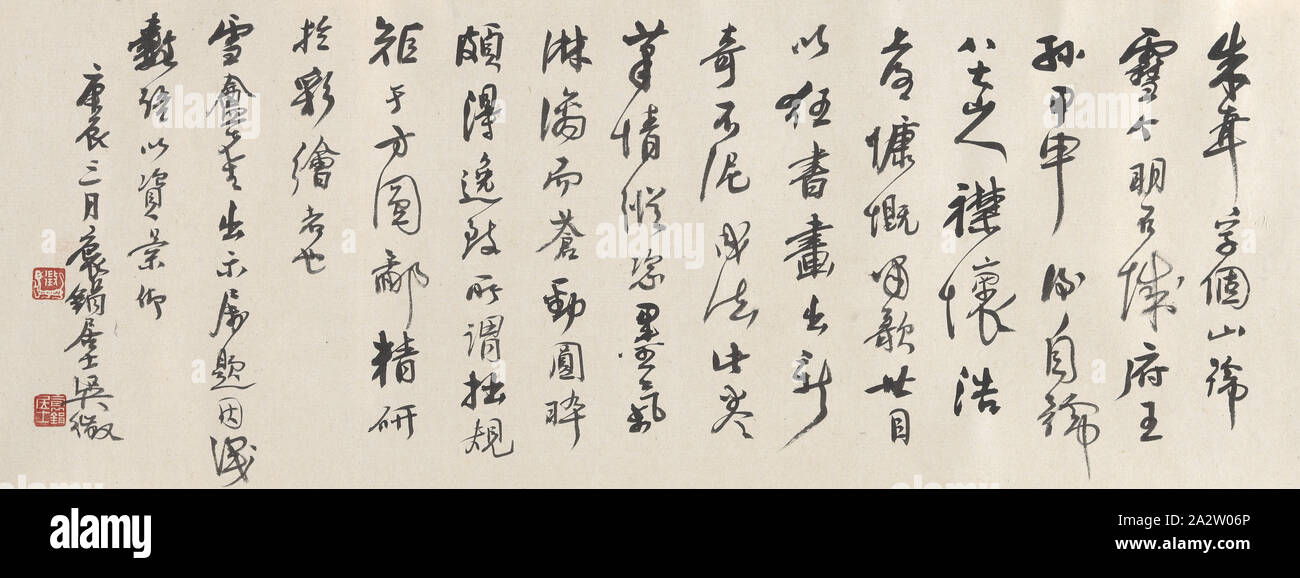 朱耷字個山號
雪个明石城府王
孫甲申後自號
八大山人襟懷浩
落慷慨嘯歌世目
以狂書畫出新
奇不泥成法此卷
筆情縱恣墨氣
淋漓而蒼勁圓晬
頗得逸致所謂拙規
矩于方圓鄙精研
於彩繪者也
雪盦先生出示屬題因識
數語以資景仰
庚辰三月居士吳徵
alamy
Image ID: 2A2W06P
www.alamy.com